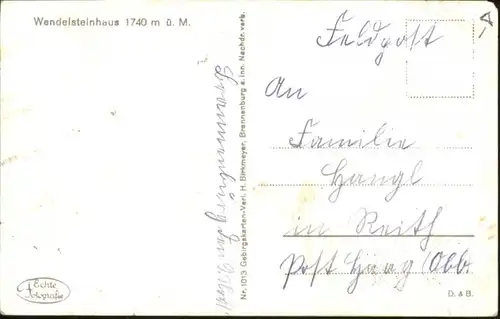 Wendelsteinhaus 1740 m ü. M.
Feldpost
An
Familie
Hangl
in Reith
Post Haag/Obb.
Brannenburg den
Nr. 1013 Gebirgskarten-Verl. H. Birkmeyer, Brannenburg a. Inn. Nachdr. verb.
Echte
Fotografie
D. & B.